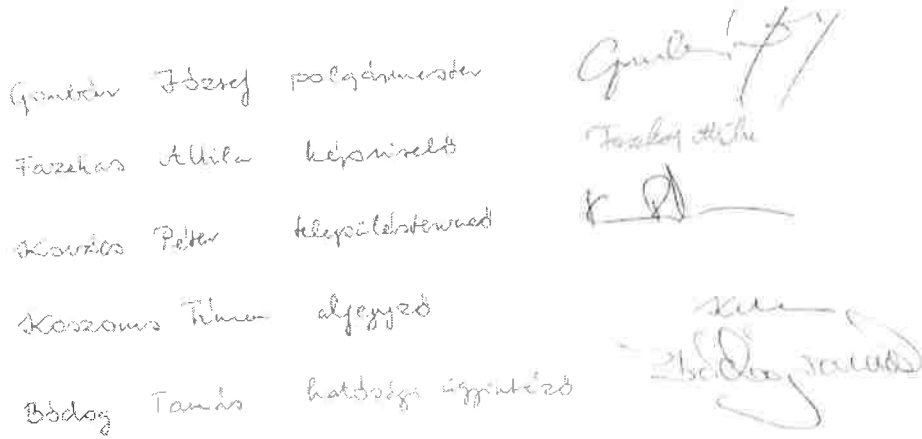 Gombár József polgármester
Fazekas Attila képviselő Fazekas Attila
Kovács Péter településtervező
Koszorus Tímea aljegyző
Bódog Tamás hatósági ügyintéző Bódog Tamás